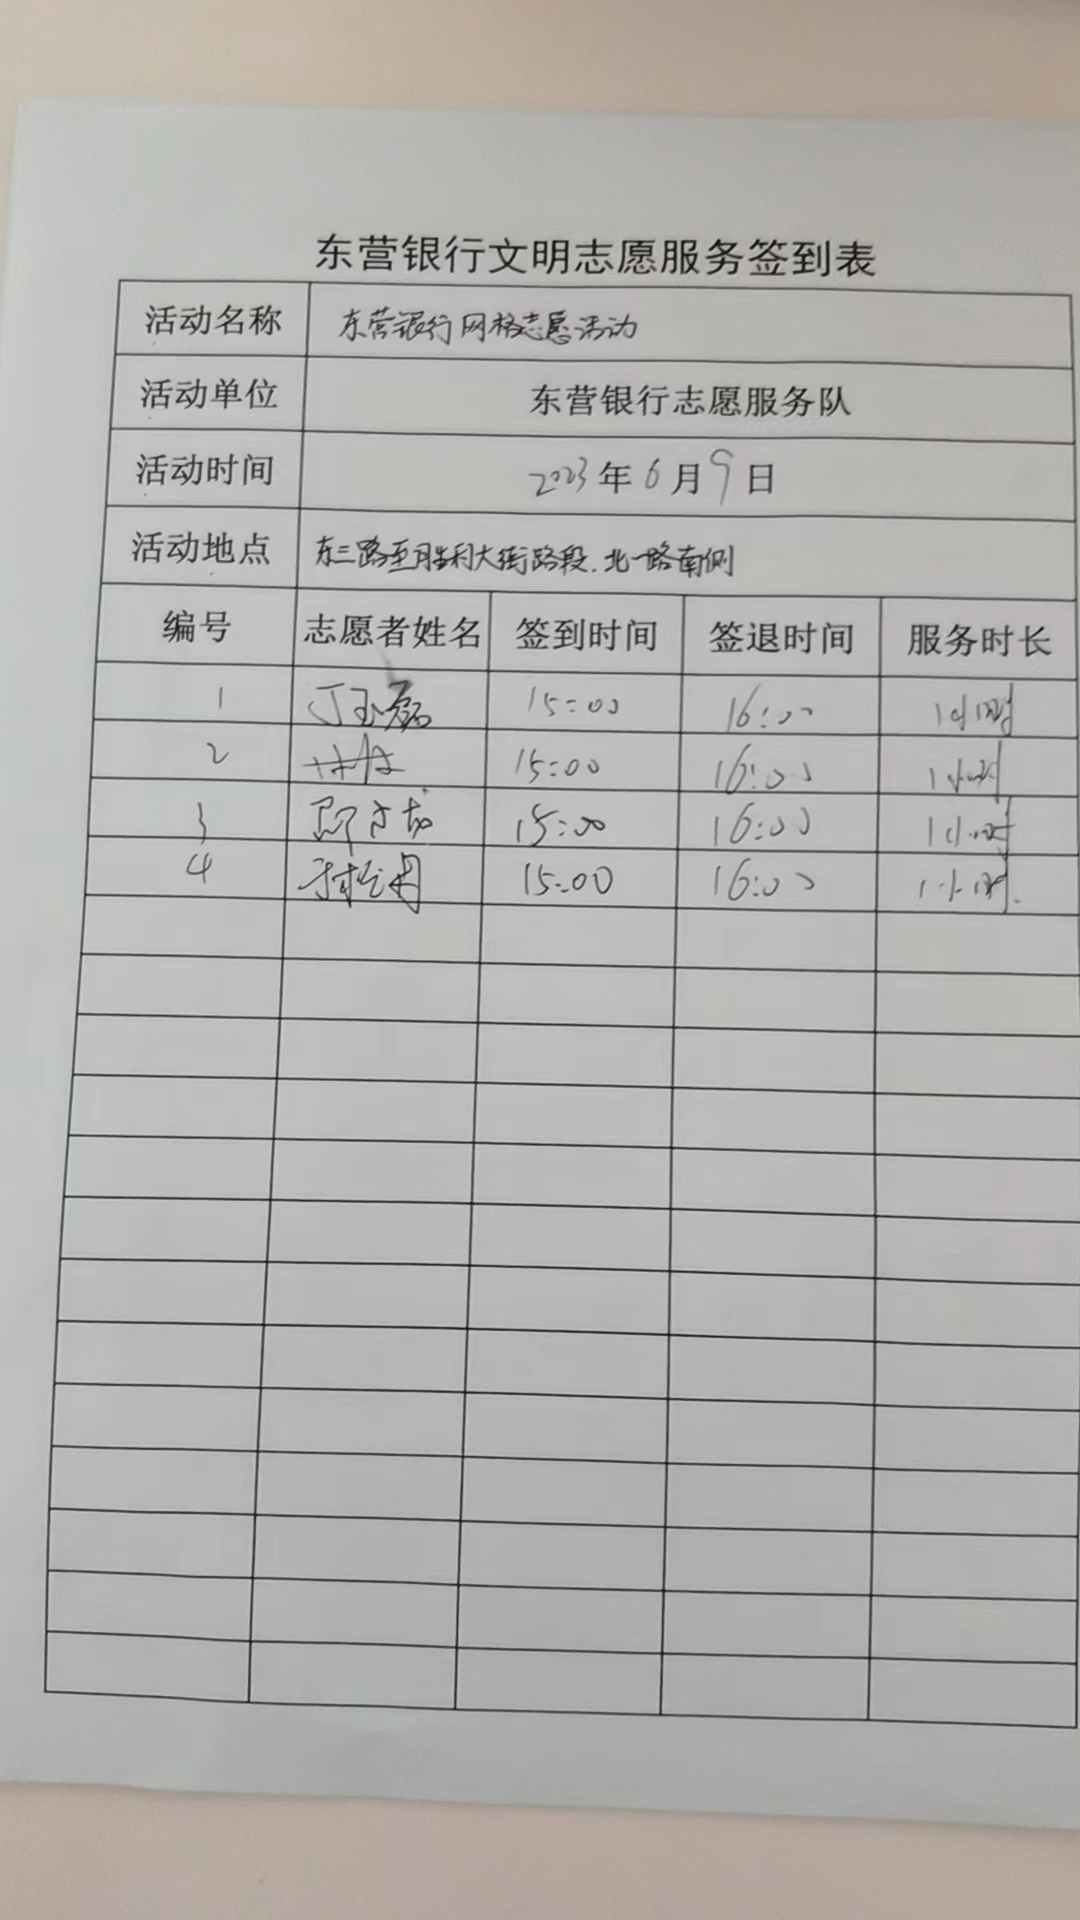 东营银行文明志愿服务签到表
活动名称 东营银行网格志愿活动
活动单位 东营银行志愿服务队
活动时间 2023年6月9日
活动地点 东三路至胜利大街路段.北一路南侧
编号 志愿者姓名 签到时间 签退时间 服务时长
1 丁玉磊 15:00 16:00 1小时
2 15:00 16:00 1小时
3 15:00 16:00 1小时
4 15:00 16:00 1小时.